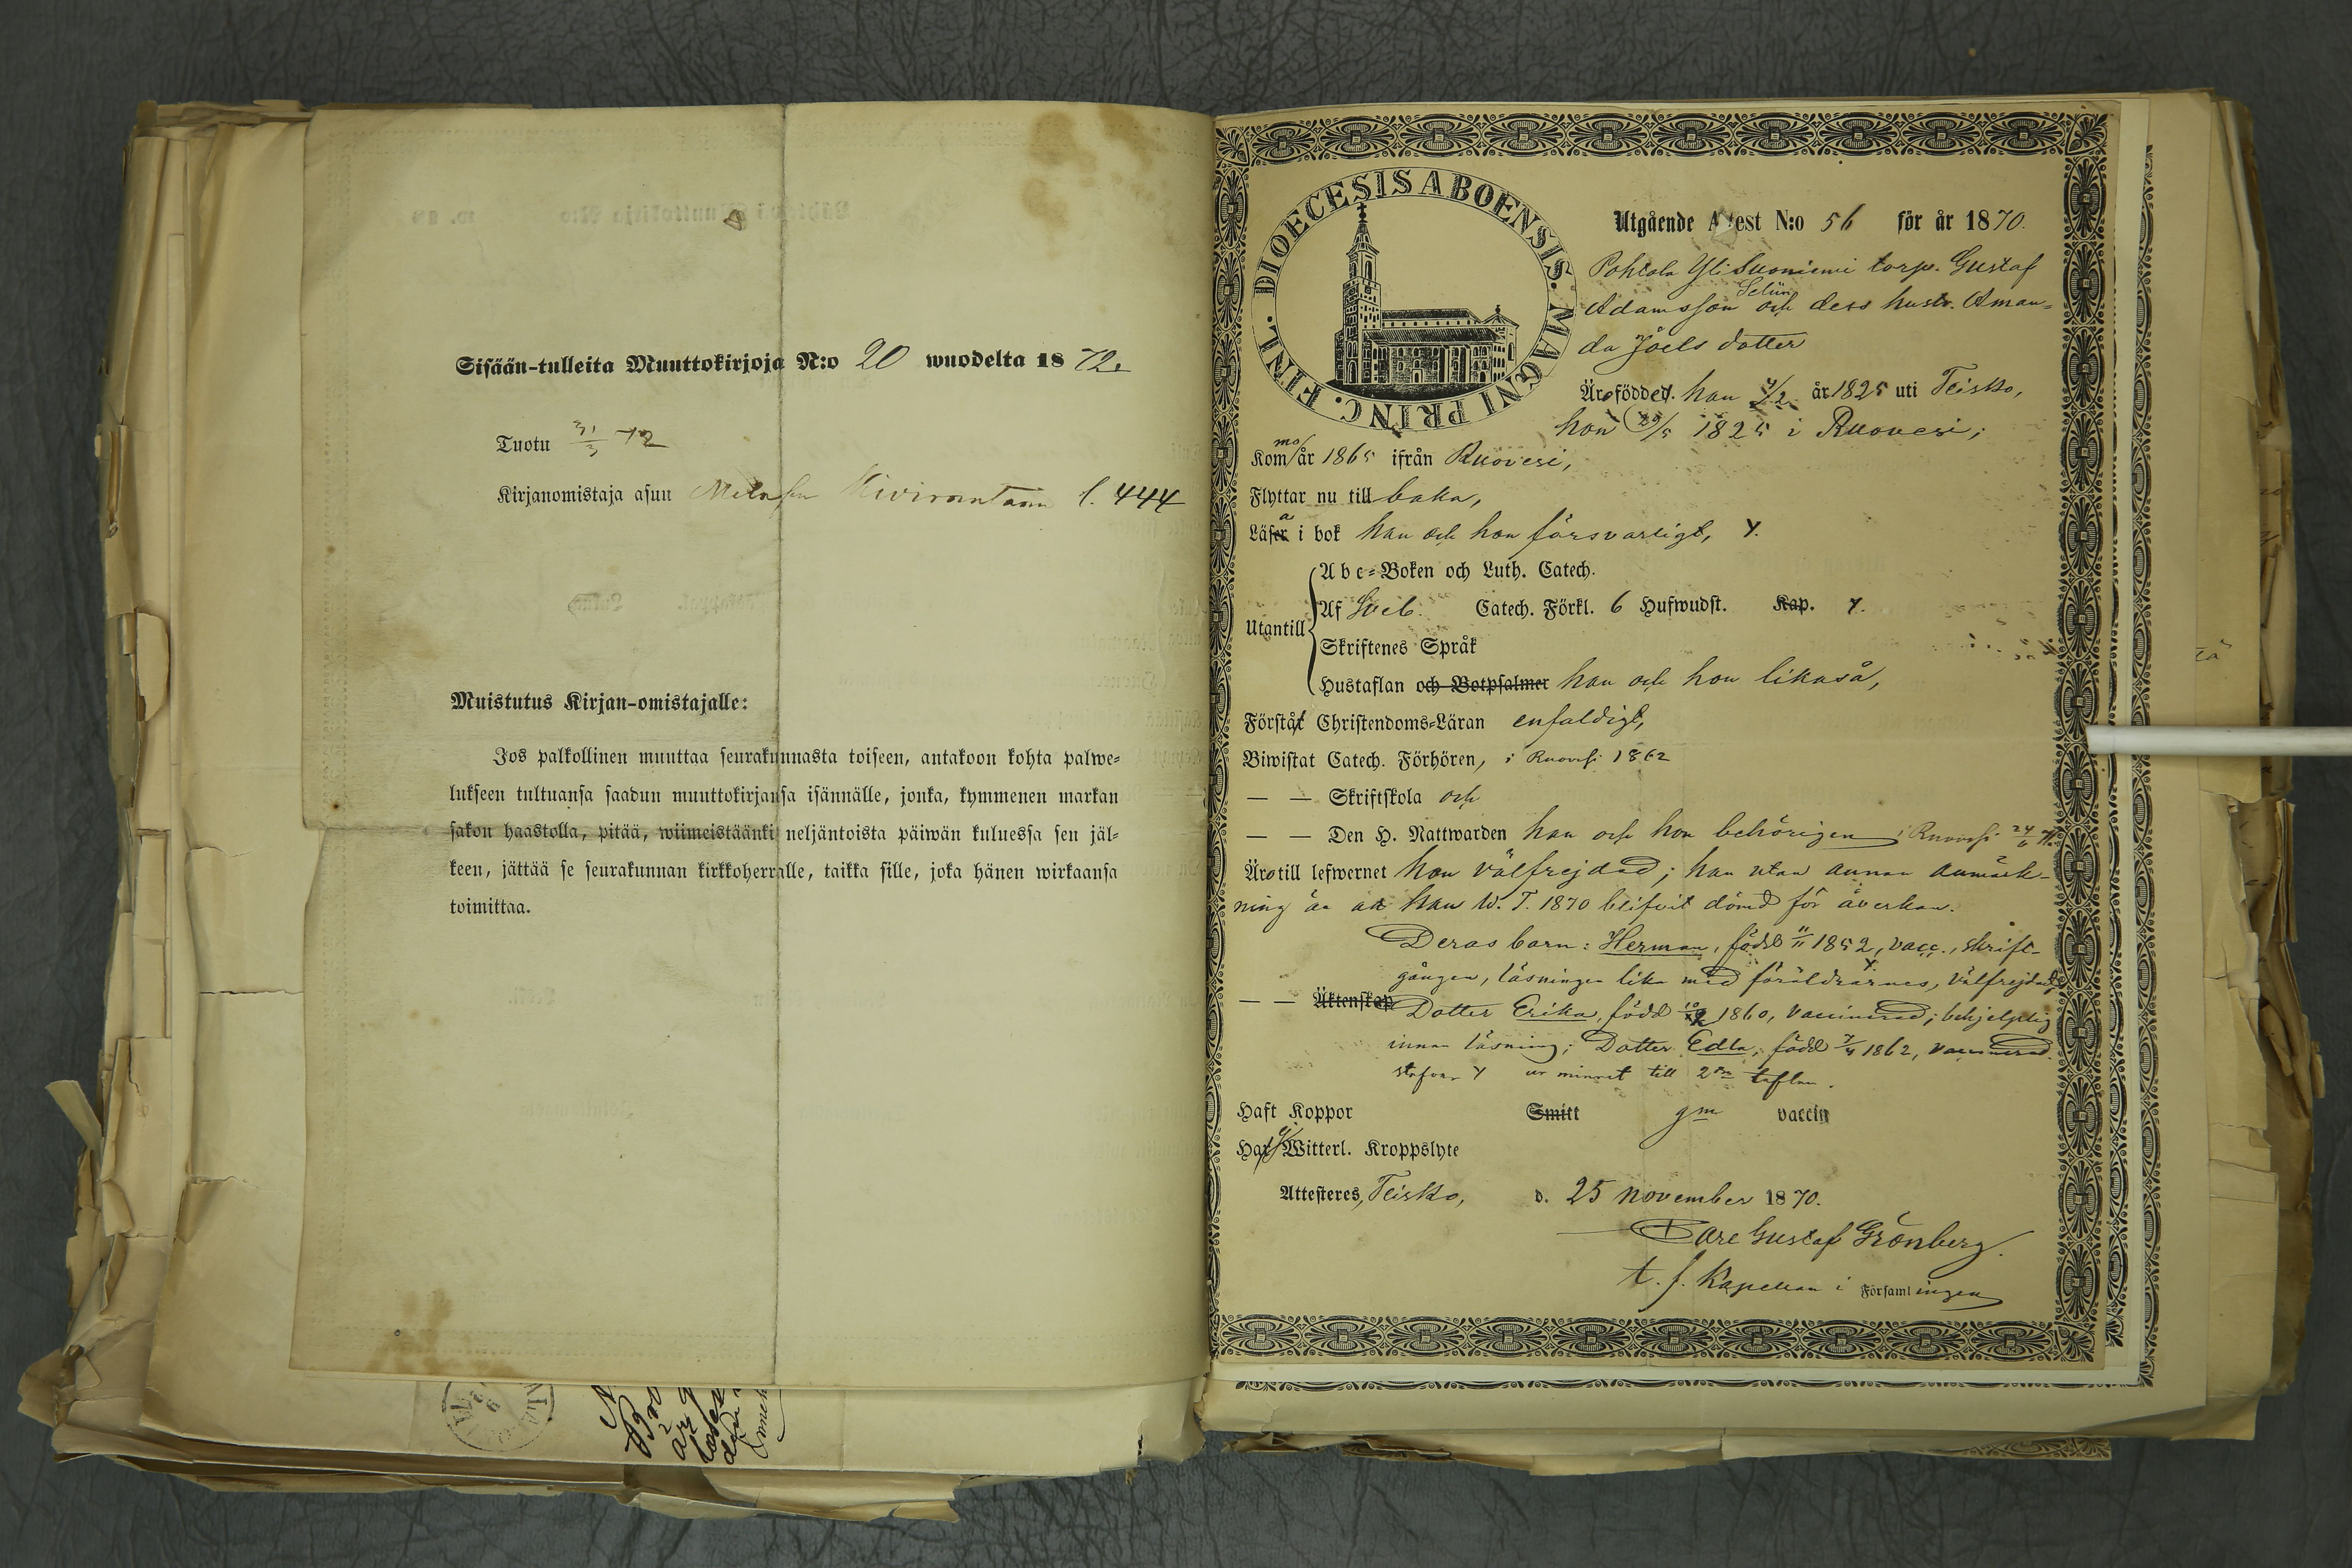 Sisään-tulleita Muuttokirjoja N:o 20 wuodelta 1872.
Tuotu 31/3 72
Kirjanomistaja asuu Kivirantaan l. 444
Muistutus Kirjan-omistajalle:
Jos palkollinen muuttaa seurakunnasta toiseen, antakoon kohta palwe-
lukseen tultuansa saadun muuttokirjansa isännälle, jonka, kymmenen markan
sakon haastolla, pitää, wiimeistäänki neljäntoista päiwän kuluessa sen jäl-
keen, jättää se seurakunnan kirkkoherralle, taikka sille, joka hänen wirkaansa
toimittaa.
DIOECESIS ABOENSIS. MAGNI PRINC. FINL.
Utgående Attest N:o 56 för år 1870.
Pohtola Yli Suoniemi torp. Gustaf
Adamsson Selin och dess hustr. Aman-
da Joels dotter
Äro födde han 7/2 år 1825 uti Teisko,
hon 29/5 1825 i Ruovesi;
Kommo år 1865 ifrån Ruovesi,
Flyttar nu till baka,
Läsa i bok han och hon försvarligt, Y.
Abc-Boken och Luth. Catech.
Utantill Af Sveb. Catech. Förkl. 6 Hufwudst. Kap. Y.
Skriftenes Språk
Hustaflan och Botpsalmer han och hon likaså,
Förstå Christendoms-Läran enfaldigt,
Biwistat Catech. Förhören, i Ruovesi 1862
— — Skriftskola och
— — Den H. Nattwarden han och hon behörigen i Ruovesi 24/6
Äro till lefwernet hon välfrejdad; han utan annan anmärk-
ning än att han W. T. 1870 blifvit dömd för åverkan.
Deras barn: Herman, född 11/11 1852, vacc., skrift-
gången, läsningen lika med föräldrarnes, välfrejdad,
— — Äktenskap Dotter Erika, född 1860, vaccinerad; behjelplig
innan läsning; Dotter Edla, född 7/4 1862, vaccinerad.
stafvar Y ur minnet till 2dra taflan.
Haft Koppor Smitt gm vaccin
Ha ej Witterl. Kroppslyte
Attesteres, Teisko, d. 25 november 1870.
Care Gustaf Grönberg.
t. f. Kapellan i Församlingen